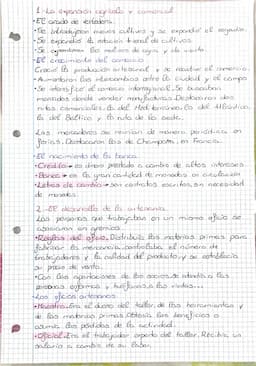 1. La expansión agrícola y comercial
• El arado de vertedera.
• Se introdujeron nuevos cultivos y se expandió el regadío.
• Se expandió la rotación trienal de cultivos.
• Se expandieron los molinos de agua y de viento.
• El crecimiento del comercio
Creció la producción artesanal y se reactivó el comercio.
• Aumentaron los intercambios entre la ciudad y el campo
• Se intensificó el comercio internacional. Se buscaban
mercados donde vender manufacturas. Destacaron dos
rutas comerciales: la del Mediterráneo, la del Atlántico,
la del Báltico y la ruta de la seda.
Los mercaderes se reunían de manera periódica en
ferias. Destacaron las de Champaña, en Francia.
• El nacimiento de la banca
• Crédito → es dinero prestado a cambio de altos intereses
• Banca → es la gran cantidad de monedas en circulación
• Letras de cambio → son contratos escritos, sin necesidad
de monedas.
2. El desarrollo de la artesanía
Las personas que trabajaban en un mismo oficio se
asociaron en gremios.
• Reglas del oficio. Distribuía las materias primas para
fabricar la mercancía, controlaba el número de
trabajadores y la calidad del producto, y se establecía
su precio de venta.
• Con las aportaciones de los socios, se atendía a las
personas enfermas y huérfanos, las viudas...
• Los oficios artesanos
• Maestro. Era el dueño del taller, de las herramientas y
de las materias primas. Obtenía los beneficios o
asumía las pérdidas de la actividad.
• Oficial. Era el trabajador experto del taller. Recibía un
salario a cambio de su labor.